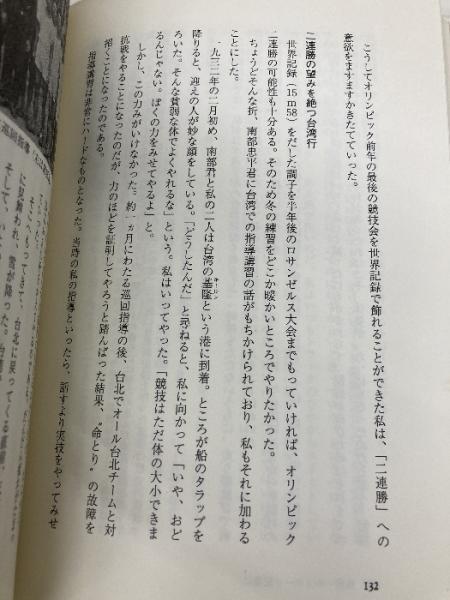 こうしてオリンピック前年の最後の競技会を世界記録で飾れることができた私は、「二連勝」への
意欲をますますかきたてていった。
二連勝の望みを絶つ台湾行
世界記録(15m58)をだした調子を半年後のロサンゼルス大会までもっていければ、オリンピック
二連勝の可能性も十分ある。そのため冬の練習をどこか暖かいところでやりたかった。
ちょうどそんな折、南部忠平君に台湾での指導講習の話がもちかけられており、私もそれに加わる
ことにした。
一九三二年の二月初め、南部君と私の二人は台湾の基隆という港に到着。ところが船のタラップを
キールン
降りると、迎えの人が妙な顔をしている。「どうしたんだ」と尋ねると、私に向かって「いや、おど
ろいた。そんな貧弱な体でよくやれるな」という。私はいってやった。「競技はただ体の大小できま
るんじゃない。ぼくの力をみせてやるよ」と。
しかし、この力みがいけなかった。約一ヵ月にわたる巡回指導の後、台北でオール台北チームと対
抗戦をやることになったのだが、力のほどを証明してやろうと踏んばった結果、“命とり”の故障を
招くことになったのである。
指導講習は非常にハードなものとなった。当時の私の指導といったら、話すより実技をやってみせ
132